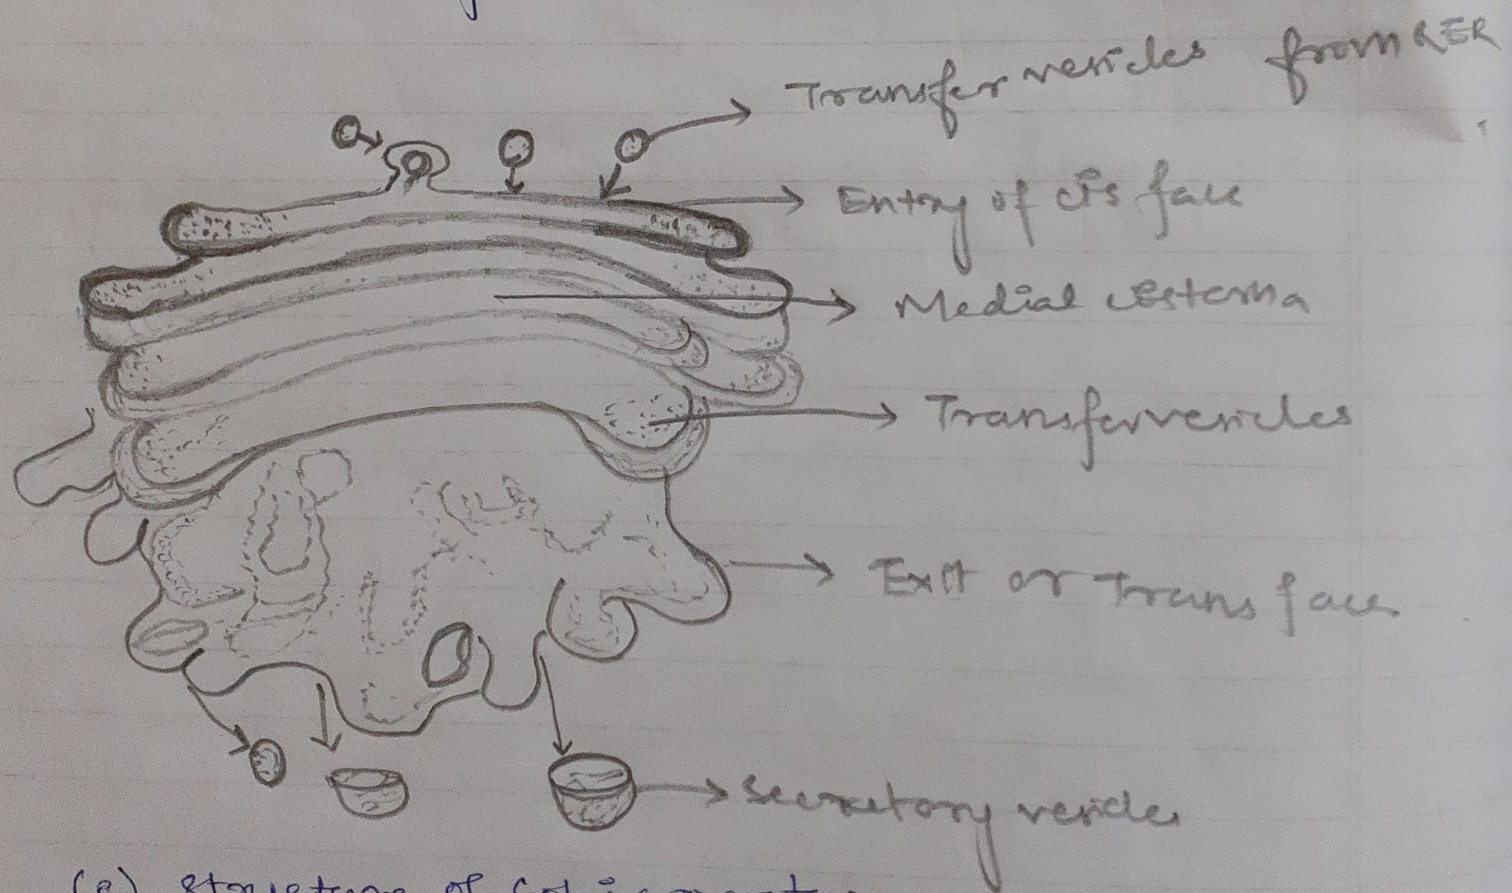 Transfer vesicles from RER
Entry of cis face
Medial cisterna
Transfervesicles
Exit or Trans face
Secretory vesicles
(e) structure of